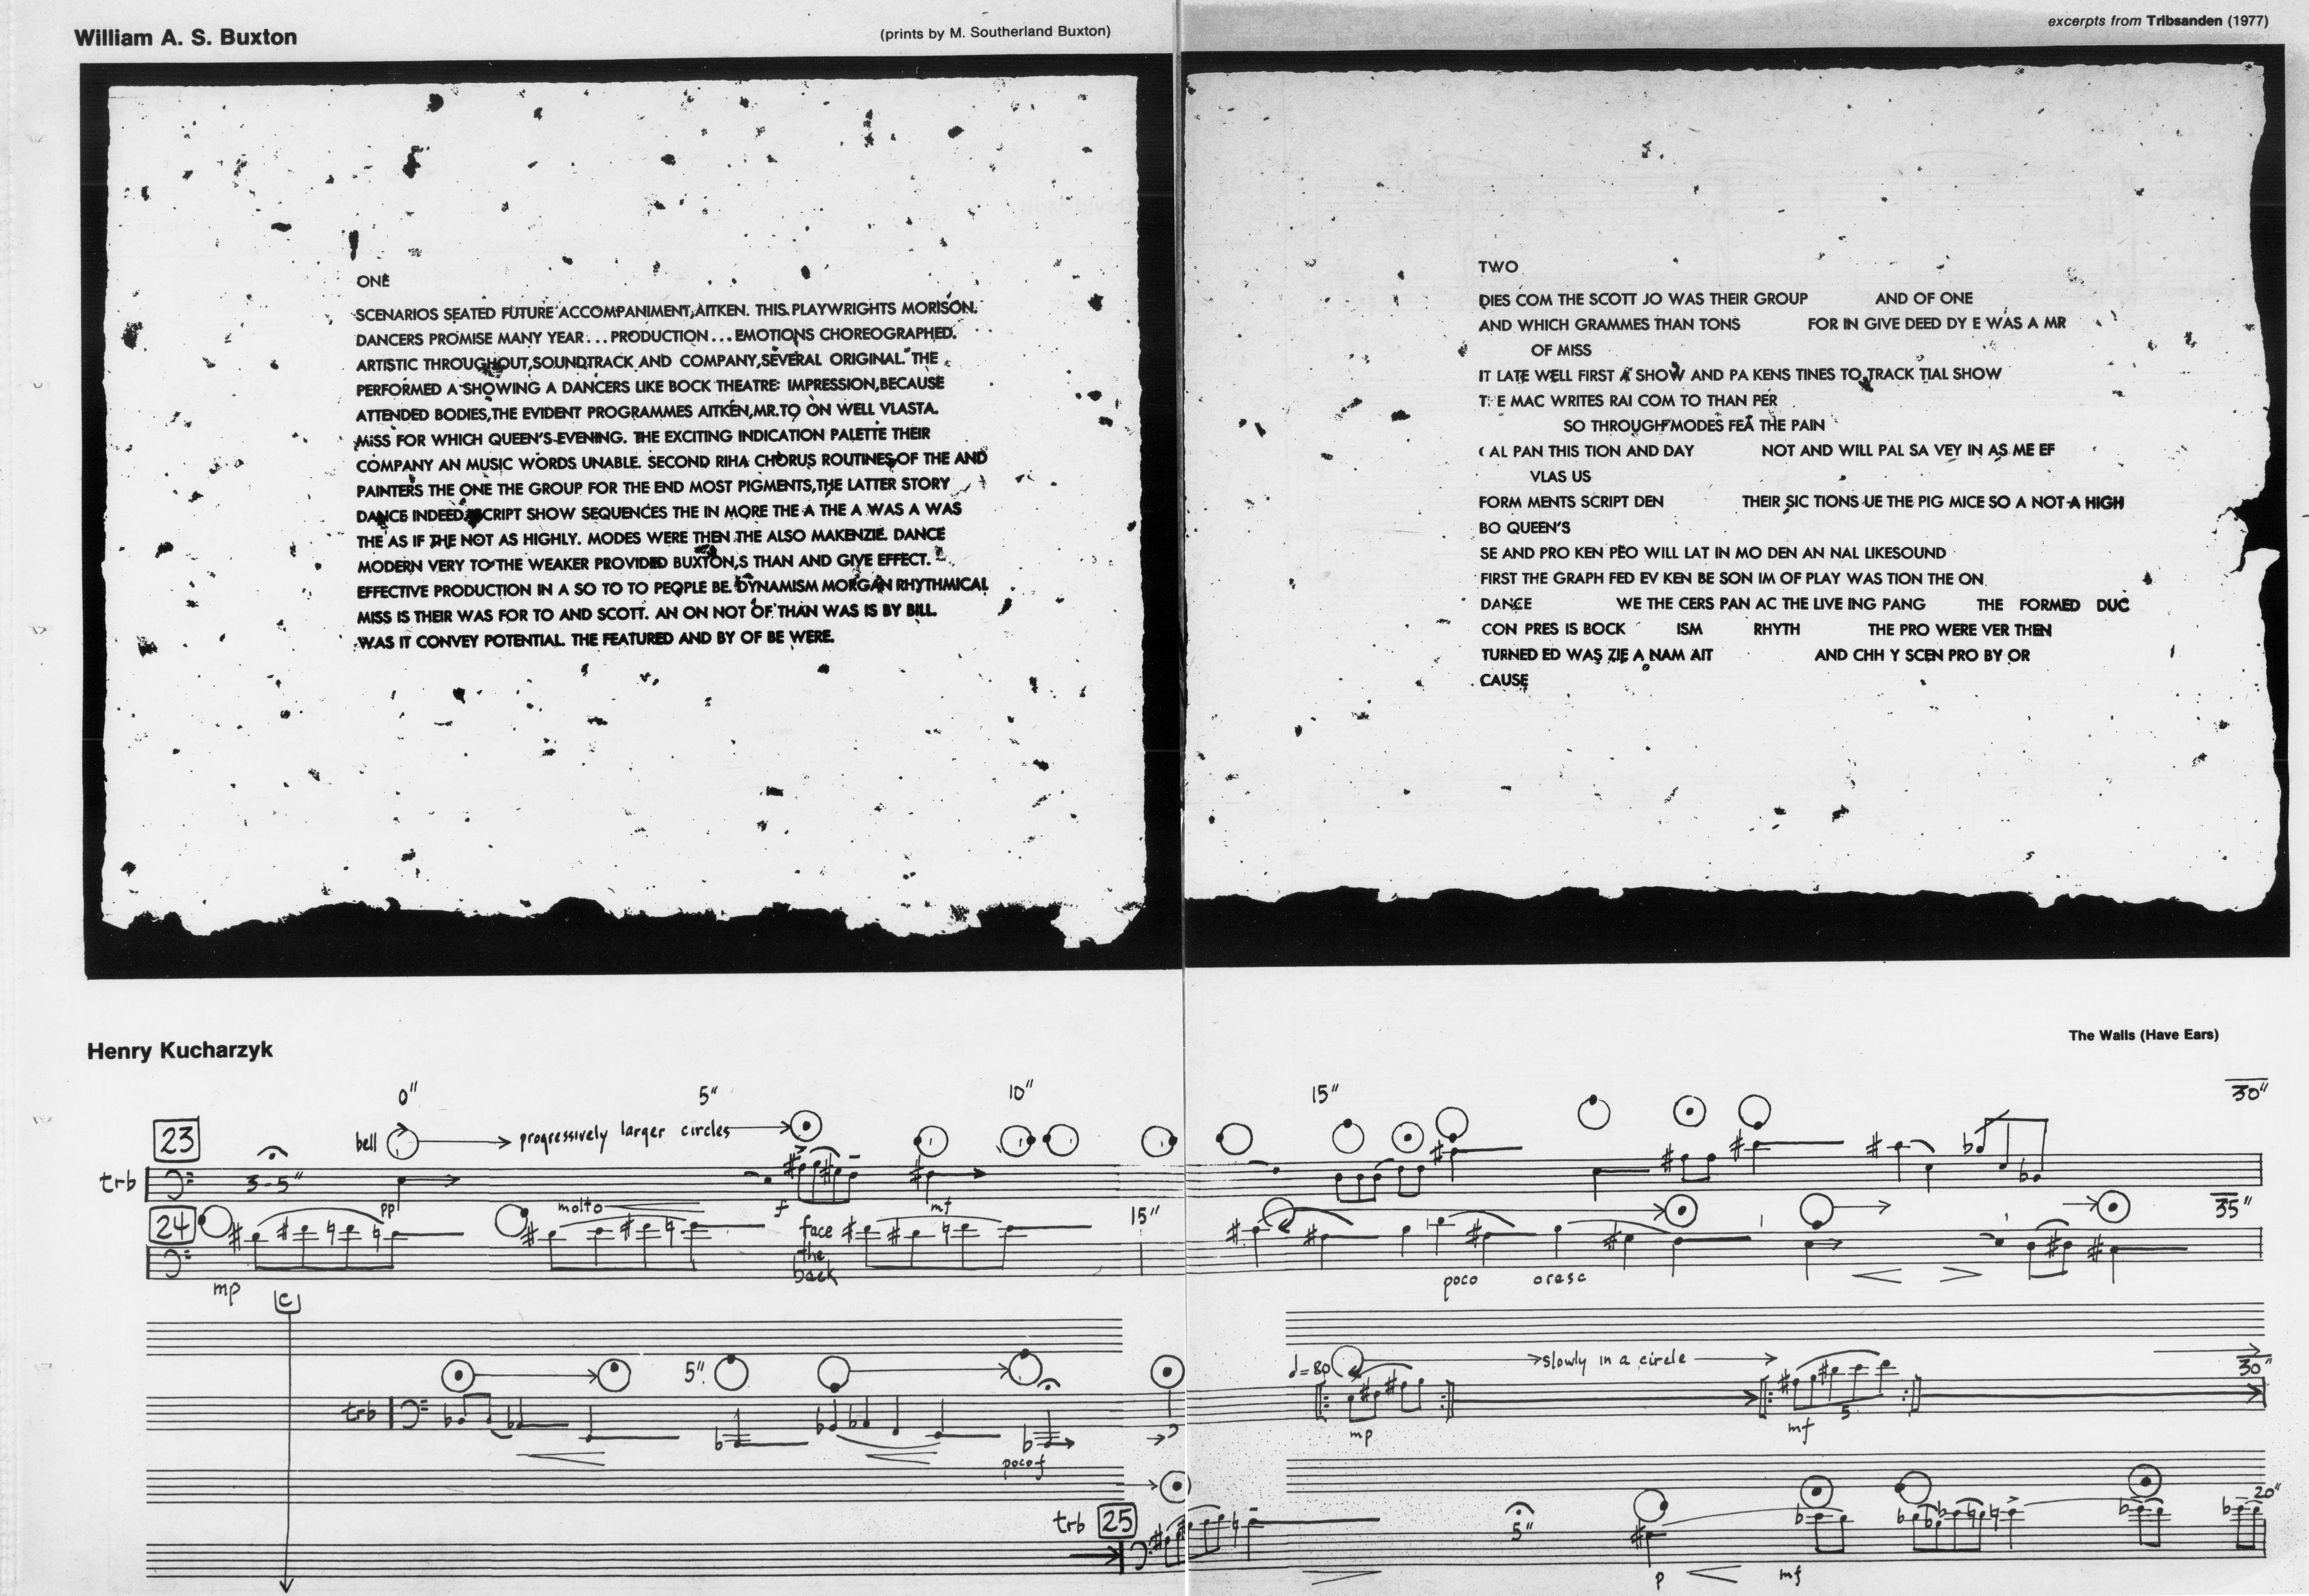 William A. S. Buxton
(prints by M. Southerland Buxton)
excerpts from Tribsanden (1977)
ONE
SCENARIOS SEATED FUTURE ACCOMPANIMENT, AITKEN. THIS. PLAYWRIGHTS MORISON.
DANCERS PROMISE MANY YEAR... PRODUCTION... EMOTIONS CHOREOGRAPHED.
ARTISTIC THROUGHOUT, SOUNDTRACK AND COMPANY, SEVERAL ORIGINAL. THE
PERFORMED A SHOWING A DANCERS LIKE BOCK THEATRE: IMPRESSION, BECAUSE
ATTENDED BODIES, THE EVIDENT PROGRAMMES AITKEN, MR. TO ON WELL VLASTA.
MISS FOR WHICH QUEEN'S EVENING. THE EXCITING INDICATION PALETTE THEIR
COMPANY AN MUSIC WORDS UNABLE. SECOND RIHA CHORUS ROUTINES OF THE AND
PAINTERS THE ONE THE GROUP FOR THE END MOST PIGMENTS, THE LATTER STORY
DANCE INDEED SCRIPT SHOW SEQUENCES THE IN MORE THE A THE A WAS A WAS
THE AS IF THE NOT AS HIGHLY. MODES WERE THEN THE ALSO MAKENZIE. DANCE
MODERN VERY TO THE WEAKER PROVIDED BUXTON, S THAN AND GIVE EFFECT.
EFFECTIVE PRODUCTION IN A SO TO TO PEOPLE BE. DYNAMISM MORGAN RHYTHMICAL
MISS IS THEIR WAS FOR TO AND SCOTT. AN ON NOT OF THAN WAS IS BY BILL.
WAS IT CONVEY POTENTIAL. THE FEATURED AND BY OF BE WERE.
TWO
DIES COM THE SCOTT JO WAS THEIR GROUP AND OF ONE
AND WHICH GRAMMES THAN TONS FOR IN GIVE DEED DY E WAS A MR
OF MISS
IT LATE WELL FIRST A SHOW AND PA KENS TINES TO TRACK TIAL SHOW
T E MAC WRITES RAI COM TO THAN PER
SO THROUGH MODES FEA THE PAIN
AL PAN THIS TION AND DAY NOT AND WILL PAL SA VEY IN AS ME EF
VLAS US
FORM MENTS SCRIPT DEN THEIR SIC TIONS UE THE PIG MICE SO A NOT A HIGH
BO QUEEN'S
SE AND PRO KEN PEO WILL LAT IN MO DEN AN NAL LIKESOUND
FIRST THE GRAPH FED EV KEN BE SON IM OF PLAY WAS TION THE ON
DANCE WE THE CERS PAN AC THE LIVE ING PANG THE FORMED DUC
CON PRES IS BOCK ISM RHYTH THE PRO WERE VER THEN
TURNED ED WAS ZIE A NAM AIT AND CHH Y SCEN PRO BY OR
CAUSE
Henry Kucharzyk
The Walls (Have Ears)
0" 5" 10" 15" 30"
23 bell progressively larger circles
trb 3-5" pp molto f mf
24 face the back 15" 35"
mp poco cresc
C
5" ♩=80 slowly in a circle 30"
trb mp mf 5
poco f
trb 25 5" 20"
p mf